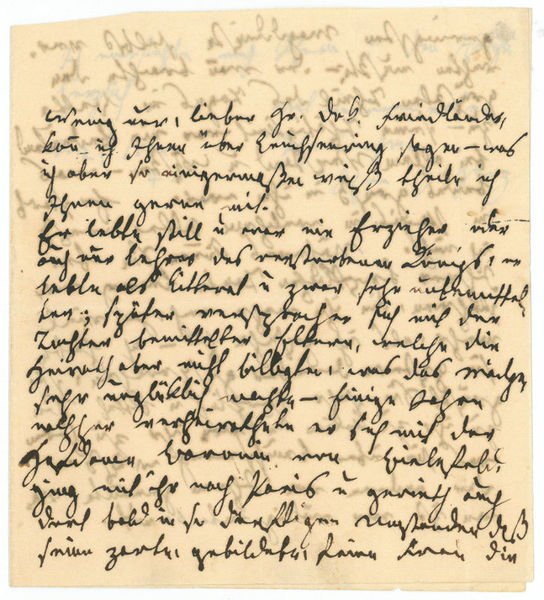 Wenig nur, lieber Hr. Dr. Friedländer,
kann ich Ihnen über Leuchsenring sagen – was
ich aber so einigermaßen weiß theile ich
Ihnen gerne mit.
Er lebte still u war nie Erzieher oder
auch nur Lehrer des verstorbenen Königs, er
lebte als Litterat u zwar sehr unbemittel-
ter; später versprach er sich mit der
Tochter bemittelter Eltern, welche die
Heirath aber nicht billigten, was das Mädchen
sehr unglücklich machte – Einige Jahre
nachher verheirathete er sich mit der
Hofdame Baronin von Bielefeld,
ging mit ihr nach Paris u gerieth auch
dort bald in so dürftigen Umständen daß
seine zarte, gebildete, feine Frau die